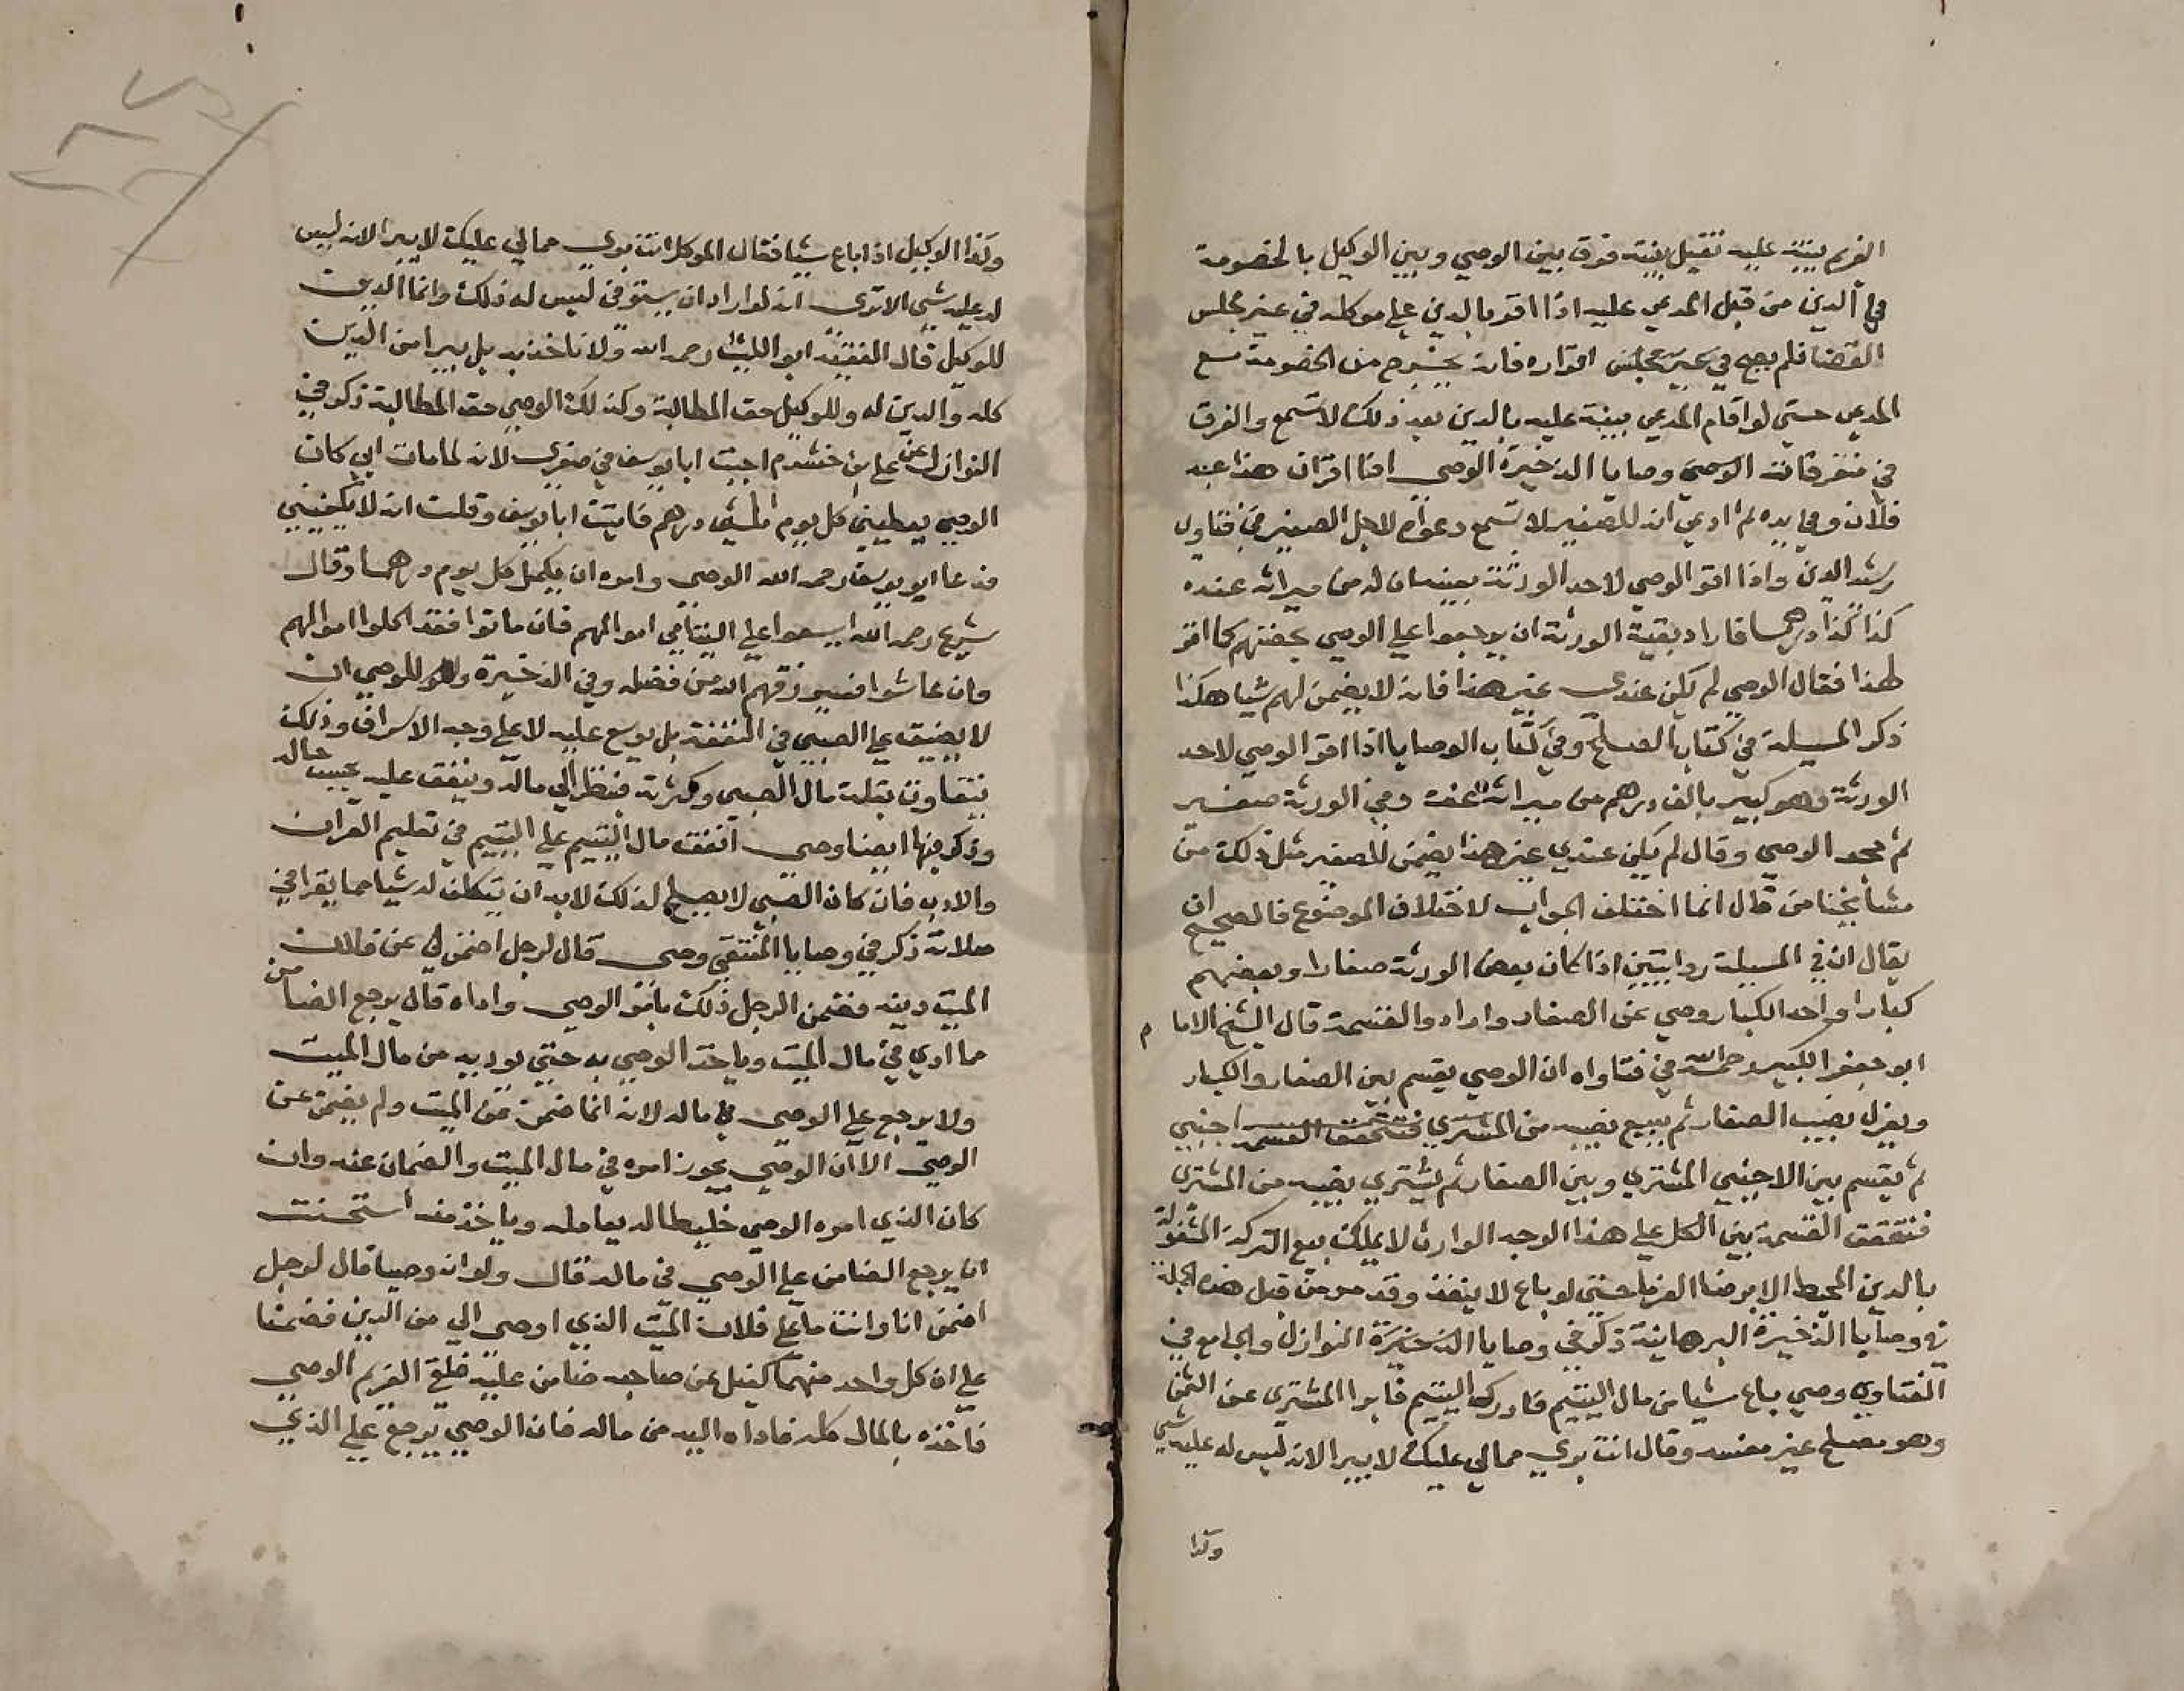 الغريم بينة عليه تقبل بينة فرق بين الوصي وبين الوكيل بالخصومة
في الدين من قبل المدعي عليه اذا اقر بالدين علي موكله في غير مجلس
القضا فلم يصح في غير مجلس اقراره فانه يخرج من الخصومة مع
المدعي حتي لو اقام المدعي بينة عليه بالدين بعد ذلك لا تسمع والفرق
في متفرقات وصايا الذخيرة الوصي اذا اقر ان هذا عبد
فلان وفي يده ثم ادعي انه للصغير لا تسمع دعواه لاجل الصغير في فتاوي
رشيد الدين واذا اقر الوصي لاحد الورثة بعينه ان له من ميراثه عنده
كذا كذا درهما فاراد بقية الورثة ان يرجعوا علي الوصي بحصتهم كما اقر
لهذا فقال الوصي لم يكن عندي غير هذا فانه لا يضمن لهم شيا هكذا
ذكر المسيلة في كتاب الصلح وفي كتاب الوصايا اذا اقر الوصي لاحد
الورثة وهو كبير بالف درهم من ميراثه عنده وفي الورثة صغير
ثم جحد الوصي وقال لم يكن عندي غير هذا يضمن للصغير مثل ذلك من
مشايخنا من قال انما اختلف الجواب لاختلاف الموضوع فالصحيح ان
يقال ان في المسيلة روايتين اذا كان بعض الورثة صغارا وبعضهم
كبارا وواحد الكبار وصي عن الصغار واراد والقسمة قال الشيخ الامام
ابو جعفر الكبير رحمه الله في فتاواه ان الوصي يقسم بين الصغار والكبار
ويعزل نصيب الصغار ثم يبيع نصيبه من المشتري اجنبي
ثم يقسم بين الاجنبي المشتري وبين الصغار ثم يشتري نصيبه من المشتري
فتتحقق القسمة بين الكل علي هذا الوجه الوارث لا يملك بيع التركة المشغولة
بالدين المحيط الا برضا الغرما حتي لو باع لا ينفذ وقد مر من قبل هذه الجملة
في وصايا الذخيرة البرهانية ذكر في وصايا الذخيرة النوازل والجامع في
الفتاوي وصي باع شيا من مال اليتيم فادرك اليتيم فابرا المشتري عن الثمن
وهو مصلح غير مفسد وقال انت بري مما لي عليك لا يبرا لانه ليس له عليه شي
وكذا
وكذا الوكيل اذا باع شيا فقال الموكل انت بري مما لي عليك لا يبرا لانه ليس
له عليه شي الا تري انه لو اراد ان يستوفي ليس له ذلك وانما الدين
للوكيل قال الفقيه ابو الليث رحمه الله ولا ناخذ به بل يبرا من الدين
كله والدين له وللوكيل حق المطالبة وكذلك الوصي حق المطالبة ذكر في
النوازل عن علي بن خشرم اجيت ابا يوسف في صغري لانه لما مات ابي كان
الوصي يعطيني كل يوم ثلثي درهم فاتيت ابا يوسف وقلت انه لا يكفيني
فدعا ابو يوسف رحمه الله الوصي وامره ان يكمل كل يوم درهما وقال
شريح رحمه الله اوسعوا علي اليتامي اموالهم فان ماتوا فقد اكلوا اموالهم
وان عاشوا فسيرزقهم الله من فضله وفي الذخيرة وللوصي ان
لا يضيق علي الصبي في النفقة بل يوسع عليه لا علي وجه الاسراف وذلك
يتفاوت بقلة مال الصبي وكثرته فينظر الي ماله وينفق عليه بحسب حاله
وذكر فيها ايضا وصي انفق مال اليتيم علي اليتيم في تعليم القران
والادب فان كان الصبي لا يصلح لذلك لا بد ان يتكلف له شيا مما يقرا في
صلاته ذكر في وصايا المنتقي وصي قال لرجل اضمن لي عن فلان
الميت دينه فضمن الرجل ذلك بامر الوصي واداه قال يرجع الضامن
ما ادي في مال الميت وياخذ الوصي به حتي يوديه من مال الميت
ولا يرجع علي الوصي في ماله لانه انما ضمن عن الميت ولم يضمن عن
الوصي الا ان الوصي يجوز امره في مال الميت والضمان عنه وان
كان الذي امره الوصي خليطا له يعامله وياخذ منه استحسنت
ان يرجع الضامن علي الوصي في ماله قال ولو ان وصيا قال لرجل
اضمن انا وانت ما علي فلان الميت الذي اوصي الي من الدين فضمنا
علي ان كل واحد منهما كفيل عن صاحبه ضامن عليه فلقي الغريم الوصي
فاخذه بالمال كله فاداه اليه من ماله فان الوصي يرجع علي الذي